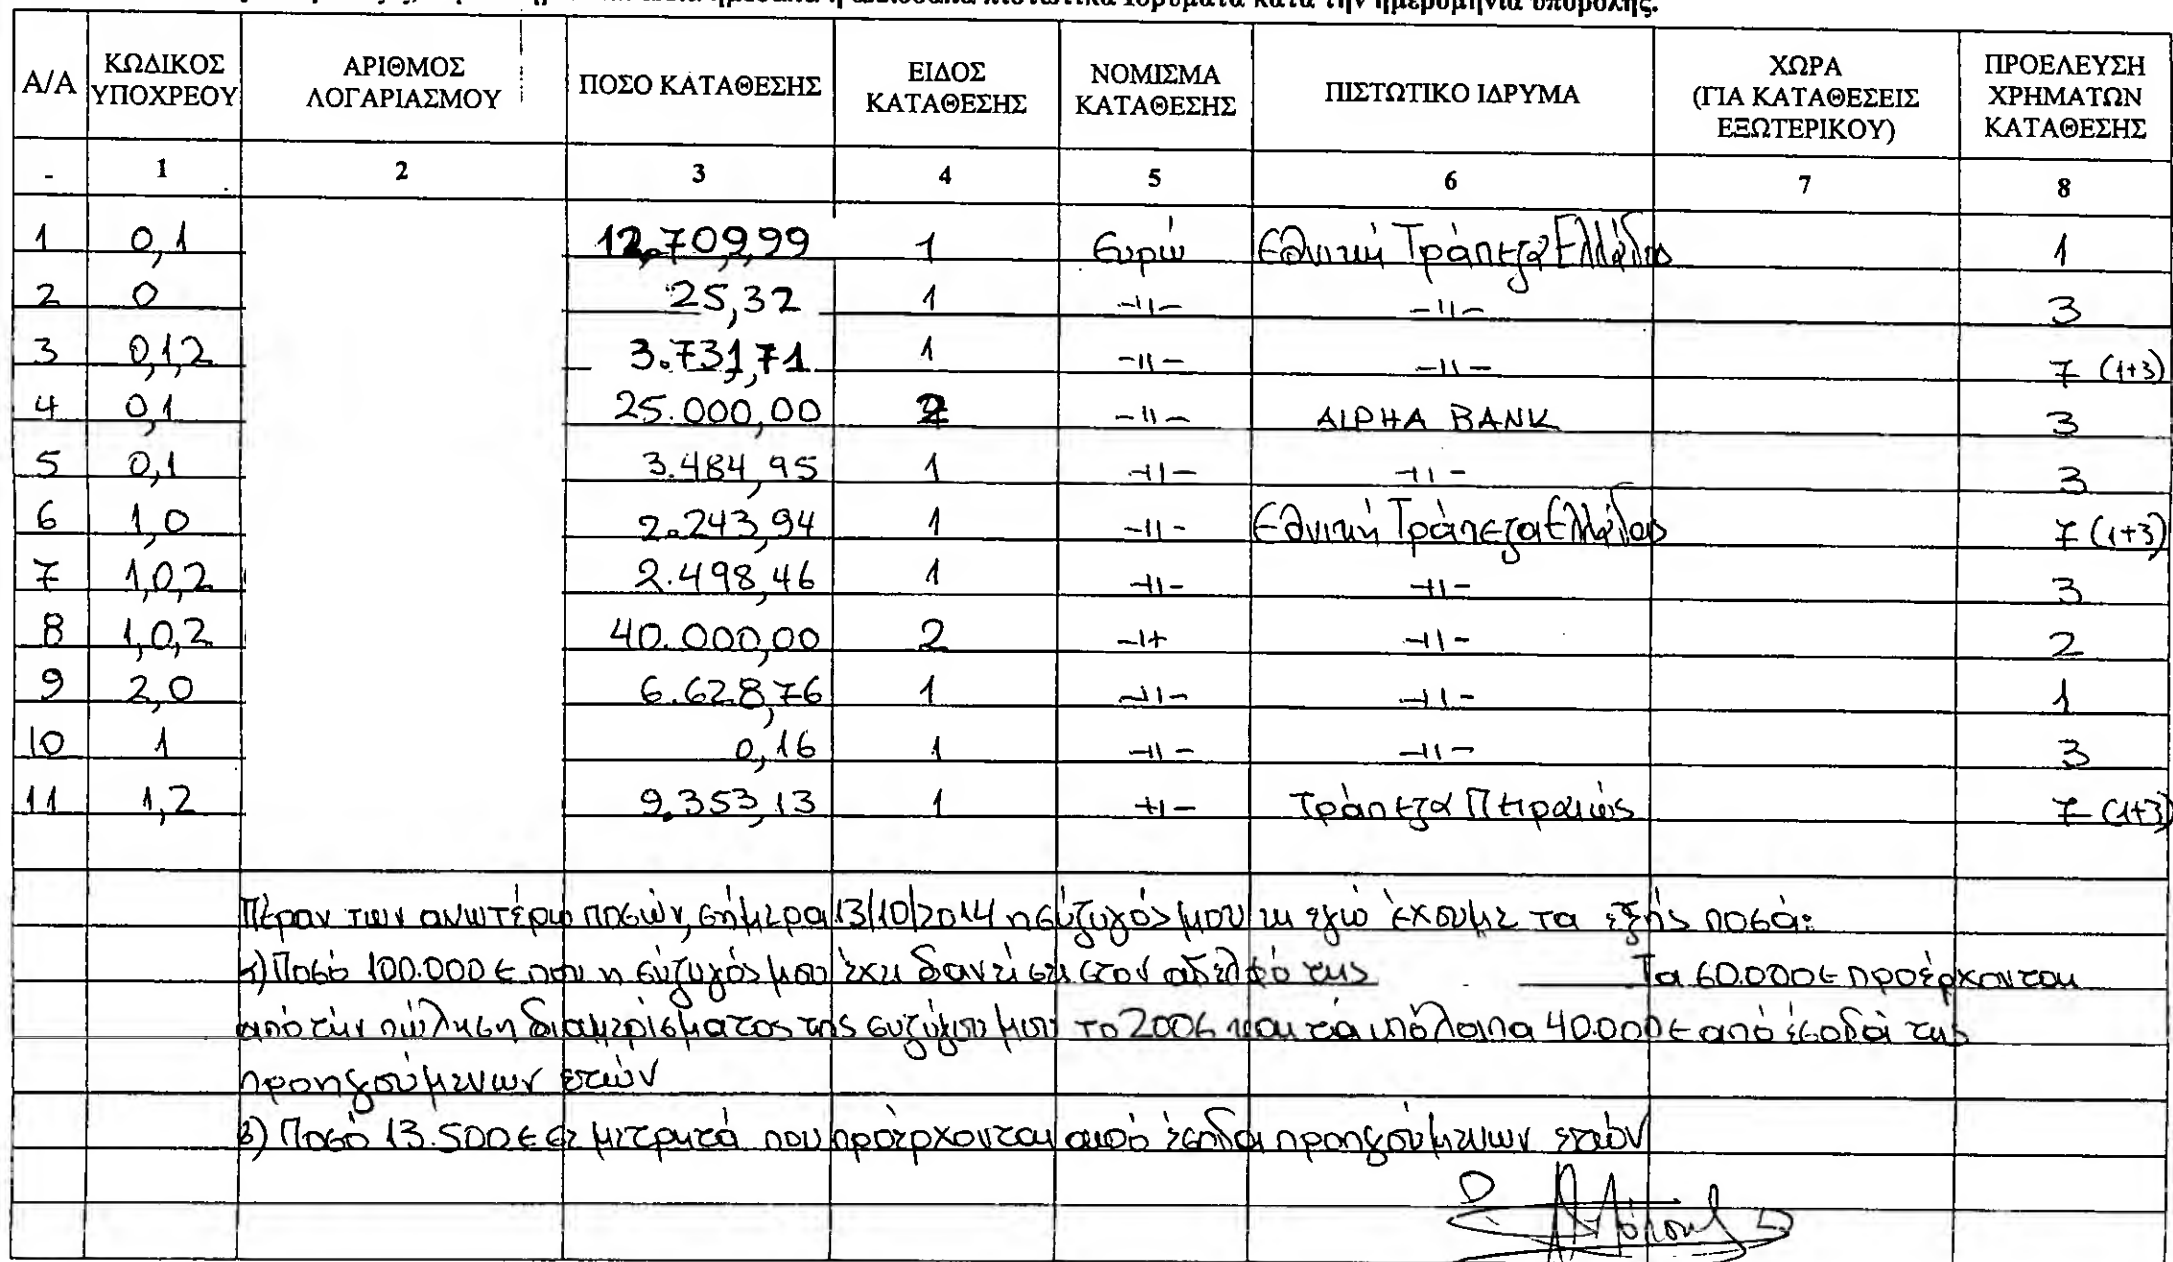 ημεδαπά ή αλλοδαπά πιστωτικά ιδρύματα κατά την ημερομηνία υποβολής.
Α/Α ΚΩΔΙΚΟΣ ΥΠΟΧΡΕΟΥ ΑΡΙΘΜΟΣ ΛΟΓΑΡΙΑΣΜΟΥ ΠΟΣΟ ΚΑΤΑΘΕΣΗΣ ΕΙΔΟΣ ΚΑΤΑΘΕΣΗΣ ΝΟΜΙΣΜΑ ΚΑΤΑΘΕΣΗΣ ΠΙΣΤΩΤΙΚΟ ΙΔΡΥΜΑ ΧΩΡΑ (ΓΙΑ ΚΑΤΑΘΕΣΕΙΣ ΕΞΩΤΕΡΙΚΟΥ) ΠΡΟΕΛΕΥΣΗ ΧΡΗΜΑΤΩΝ ΚΑΤΑΘΕΣΗΣ
- 1 2 3 4 5 6 7 8
1 0,1 12.709,99 1 Ευρώ Εθνική Τράπεζα Ελλάδος 1
2 0 25,32 1 -||- -||- 3
3 0,1,2 3.731,71 1 -||- -||- 7 (1+3)
4 0,1 25.000,00 2 -||- ALPHA BANK 3
5 0,1 3.484,95 1 -||- -||- 3
6 1,0 2.243,94 1 -||- Εθνική Τράπεζα Ελλάδος 7 (1+3)
7 1,0,2 2.498,46 1 -||- -||- 3
8 1,0,2 40.000,00 2 -||- -||- 2
9 2,0 6.628,76 1 -||- -||- 1
10 1 0,16 1 -||- -||- 3
11 1,2 9.353,13 1 -||- Τράπεζα Πειραιώς 7 (1+3)
Πέραν των ανωτέρω ποσών, σήμερα 13/10/2014 η σύζυγός μου κι εγώ έχουμε τα εξής ποσά:
α) Ποσό 100.000 € που η σύζυγός μου έχει δανείσει στον αδελφό της Τα 60.000€ προέρχονται
από την πώληση διαμερίσματος της συζύγου μου το 2006 και τα υπόλοιπα 40.000€ από έσοδά της
προηγούμενων ετών
β) Ποσό 13.500€ σε μετρητά που προέρχονται από έσοδα προηγούμενων ετών